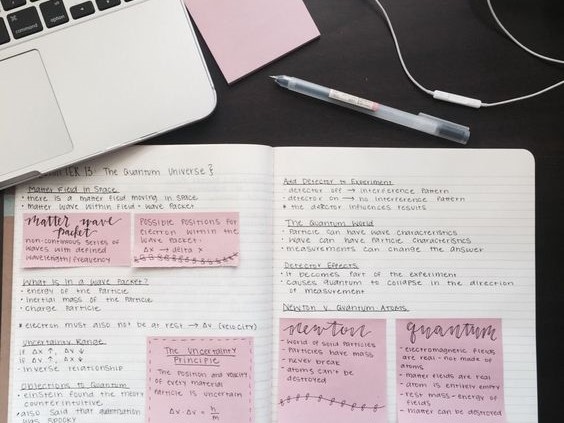 CHAPTER 13: The Quantum Universe
Matter Field in Space
• there is a matter field moving in space
• matter wave within field = wave packet
matter wave
packet
non-continuous series of
waves with defined
wavelength/frequency
Possible positions for
electron within the
wave packet:
Δx → delta x
What is in a Wave Packet?
• energy of the particle
• inertial mass of the particle
• charge particle
* electron must also not be at rest → Δv (velocity)
Uncertainty Range
if Δx ↑, Δv ↓
if Δv ↑, Δx ↓
• inverse relationship
Objections to Quantum
• einstein found the theory
counterintuitive
• also said that
was spooky
The Uncertainty
Principle
The position and
of every material
particle is uncertain
Δx · Δv = h/m
Add Detector to Experiment
• detector off → interference pattern
• detector on → no interference pattern
* the detector influences results
The Quantum World
• Particle can have wave characteristics
• Wave can have particle characteristics
• measurements can change the answer
Detector Effects
• it becomes part of the experiment
• causes quantum to collapse in the direction
of measurement
Newton v. Quantum Atoms
newton
- world of solid particles
- particles have mass
- never break
- atoms can't be
destroyed
quantum
- electromagnetic fields
are real - not made of
atoms
- matter fields are real
- atom is entirely empty
- rest mass - energy of
fields
- matter can be destroyed
command
option